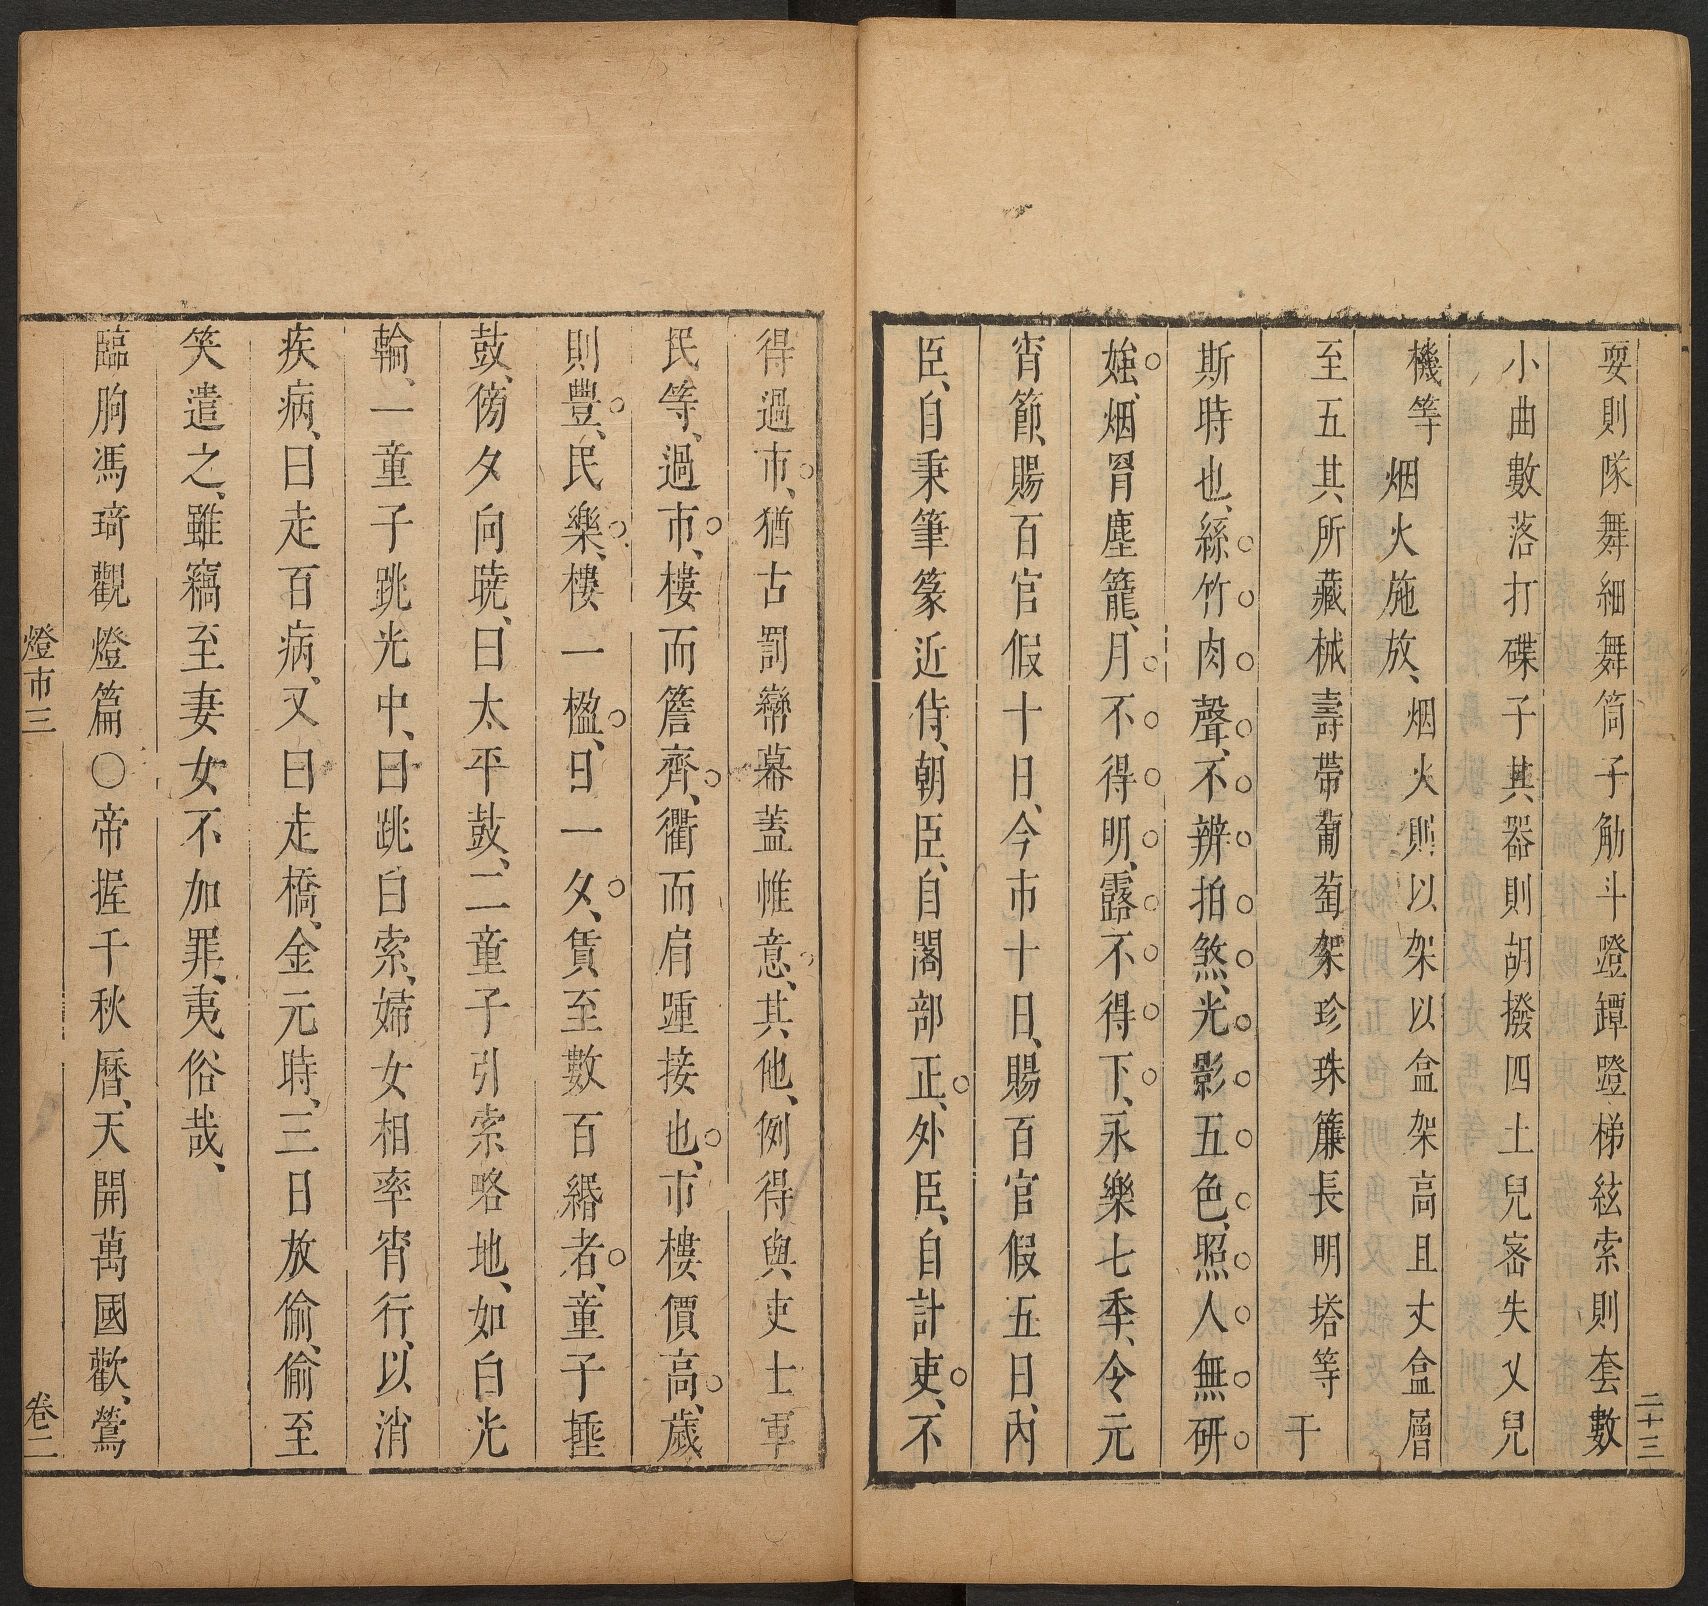 二十三
耍則隊舞細舞筒子觔斗蹬罈蹬梯絃索則套數
小曲數落打碟子其器則胡撥四土兒宻失乂兒
機等　烟火施放、烟火則以架以盒架高且丈盒層
至五其所藏械壽帶葡萄架珍珠簾長明塔等　于
斯時也、絲竹肉聲、不辨拍煞、光影五色、照人無研
媸、烟罥塵籠、月不得明、露不得下、永樂七秊、令元
宵節、賜百官假十日、今市十日、賜百官假五日、內
臣、自秉筆篆近侍、朝臣、自閣部正、外臣、自計吏、不
得過市、猶古罰幜幕蓋帷意、其他、例得與吏士軍
民等、過市、樓而簷齊、衢而肩踵接也、市樓價高、歲
則豐、民樂、樓一楹、日一夕、賃至數百緡者、童子捶
鼓、傍夕向曉、曰太平鼓、二童子引索略地、如白光
輪、一童子跳光中、曰跳白索、婦女相率宵行、以消
疾病、曰走百病、又曰走橋、金元時、三日放偷、偷至
笑遣之、雖竊至妻女、不加罪、夷俗哉、
臨朐馮琦觀燈篇〇帝握千秋曆、天開萬國歡、鶯
燈市三　卷二